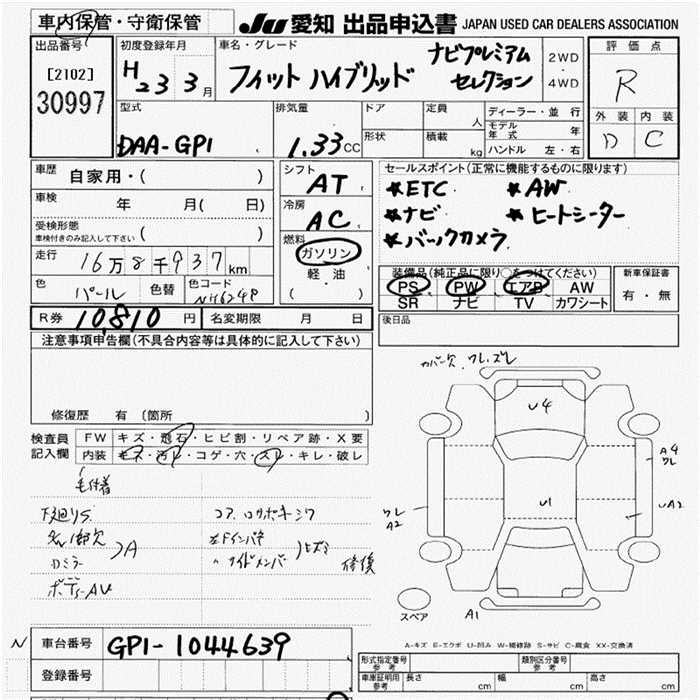 車内保管・守衛保管 JU 愛知 出品申込書 JAPAN USED CAR DEALERS ASSOCIATION
出品番号 [2102] 30997
初度登録年月 H23 3月
車名・グレード フィットハイブリッド ナビプレミアム セレクション
2WD ・ 4WD
評価点 R
外装 D 内装 C
型式 DAA-GP1
排気量 1.33cc
ドア 形状
定員 人 積載 kg
ディーラー・並行
モデル年式 年
ハンドル 左・右
車歴 自家用・( )
車検 年 月( 日)
受検形態 車検付きのみ記入して下さい ( )
走行 16万8千937km
色 パール 色替 色コード NH624P
シフト AT
冷房 AC
燃料 ガソリン 軽油 ( )
セールスポイント(正常に機能するものに限ります)
★ETC ★AW
★ナビ ★ヒートシーター
★バックカメラ
装備品(純正品に限り○をつけてください)
PS PW エアB AW
SR ナビ TV カワシート
新車保証書 有・無
R券 10,810円 名変期限 月 日
後日品
注意事項申告欄(不具合内容等は具体的に記入して下さい)
修復歴 有(箇所 )
検査員記入欄
FW キズ・飛石・ヒビ割・リペア跡・X要
内装 キズ・汚レ・コゲ・穴・スレ・キレ・破レ
下廻りS
コアロサポキシワ
A
ボディーAU
修復
カバー欠 ワレ、ズレ
U4
U1
A4 ワレ
UA2
ワレ A2
A1
スペア
A-キズ E-エクボ U-凹み W-補修跡 S-サビ C-腐食 XX-交換済
N 車台番号 GP1-1044639
登録番号
形式指定番号 参考 類別区分番号 参考
車庫証明用 参考 長さ cm 幅 cm 高さ cm